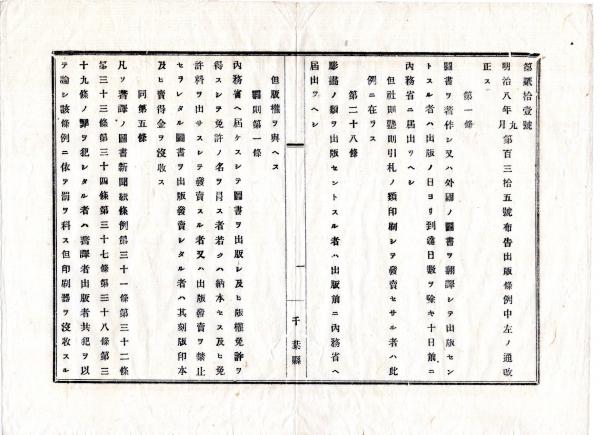 第貳拾壹號
明治八年九月第百三拾五號布告出版條例中左ノ通改
正ス
第一條
圖書ヲ著作シ又ハ外國ノ圖書ヲ飜譯シテ出版セン
トスル者ハ出版ノ日ヨリ到達日數ヲ除キ十日前ニ
內務省ニ届出ツヘシ
但社則塾則引札ノ類印刷シテ發賣セサル者ハ此
例ニ在ラス
第二十八條
彫畵ノ類ヲ出版セントスル者ハ出版前ニ內務省ヘ
届出ツヘシ
千葉縣
一
但版權ヲ與ヘス
罰則第一條
內務省ヘ届ケスシテ圖書ヲ出版シ及ヒ版權免許ヲ
得スシテ免許ノ名ヲ冐ス者若クハ納本セス及ヒ免
許料ヲ出サスシテ發賣スル者又ハ出版發賣ヲ禁止
セラレタル圖書ヲ出版發賣シタル者ハ其刻版印本
及ヒ賣得金ヲ沒收ス
同第五條
凡ソ著譯ノ圖書新聞紙條例第三十一條第三十二條
第三十三條第三十四條第三十七條第三十八條第三
十九條ノ罪ヲ犯シタル者ハ著譯者出版者共犯ヲ以
テ論シ該條例ニ依テ罰ヲ科ス但印刷器ヲ沒收スル